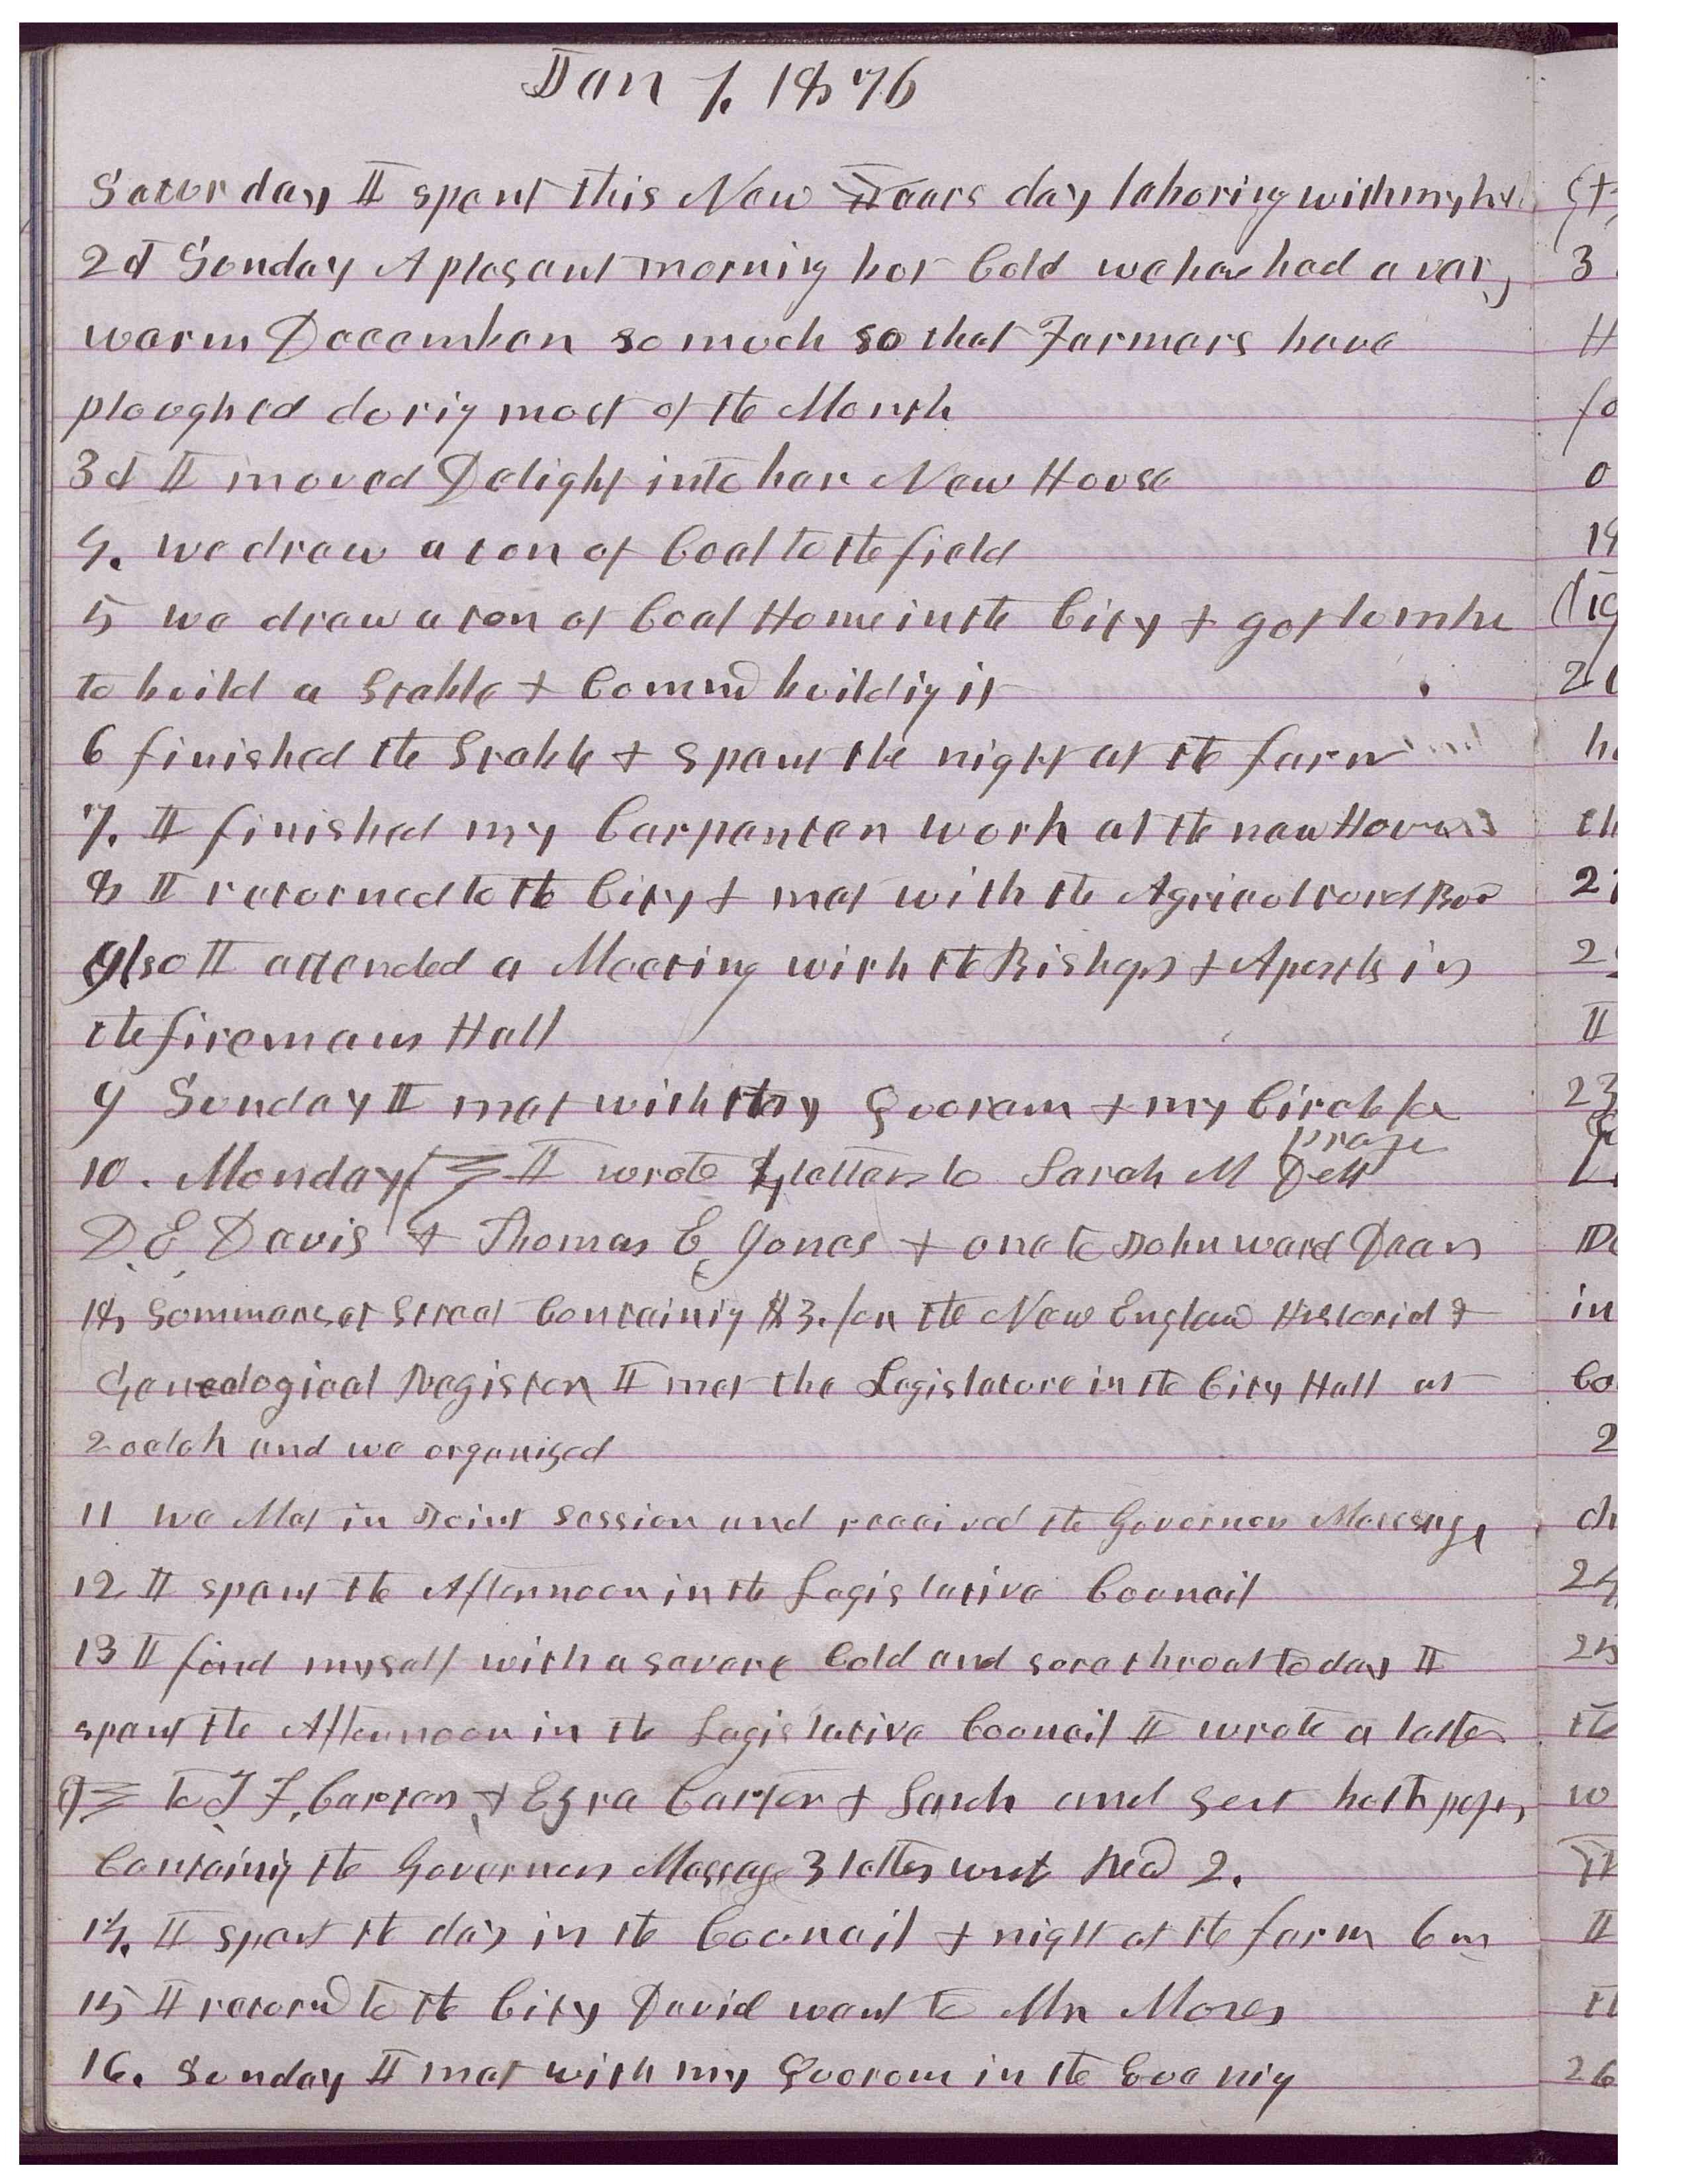 Jan 1. 1876
Saturday I spent this New Years day laboring with my
2d Sunday A plesant morning but Cold we have had a very
warm December so much so that Farmers have
ploughed during most of the Month
3d I moved Delight into her New House
4. we drew a ton of Coal to the field
5 we drew a ton of Coal Home in the City & got lumber
to build a Stable & Commd building it
6 finished the Stable & spent the night at the farm
7. I finished my Carpenter work at the new House
8 I returned to the City & met with the Agricultural
Also I attended a Meeting with the Bishops & Apostles in
the firemans Hall
9 Sunday I met with my Quorum & my Circle for
prayr
10. Monday I wrote 4 letters to Sarah M Dell
D. E. Davis & Thomas E Jones & one to John ward Dean
18 Sommerset Street Containing $3. for the New England Historical &
Genealogical Register I met the Legislature in the City Hall at
2 oclok and we organized
11 We Met in Joint session and received the Governor Message
12 I spent the Afternoon in the Legislative Council
13 I find myself with a severe Cold and sore throat to day I
spent the Afternoon in the Legislative Council I wrote a letter
to I F, Carter & Ezra Carter & Sarah and sent both papers
Containing the Governors Message 3 letters Red 2.
14. I spent the day in the Council & night at the farm 6 m
15 I returnd to the City David went to Mr Moses
16. Sunday I met with my Quorum in the Evening